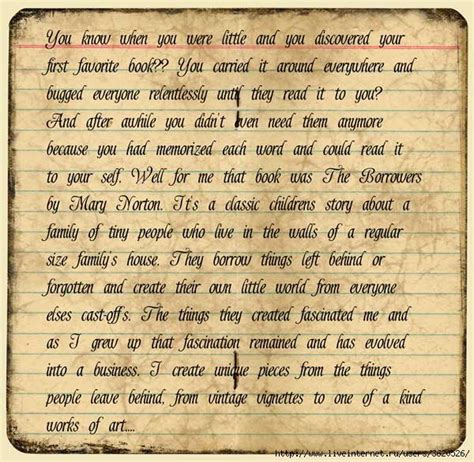 You know when you were little and you discovered your
first favorite book?? You carried it around everywhere and
bugged everyone relentlessly until they read it to you?
And after awhile you didn't even need them anymore
because you had memorized each word and could read it
to your self. Well for me that book was The Borrowers
by Mary Norton. It's a classic childrens story about a
family of tiny people who live in the walls of a regular
size family's house. They borrow things left behind or
forgotten and create their own little world from everyone
elses cast-offs. The things they created fascinated me and
as I grew up that fascination remained and has evolved
into a business. I create unique pieces from the things
people leave behind, from vintage vignettes to one of a kind
works of art....
http://www.liveinternet.ru/users/3620526/